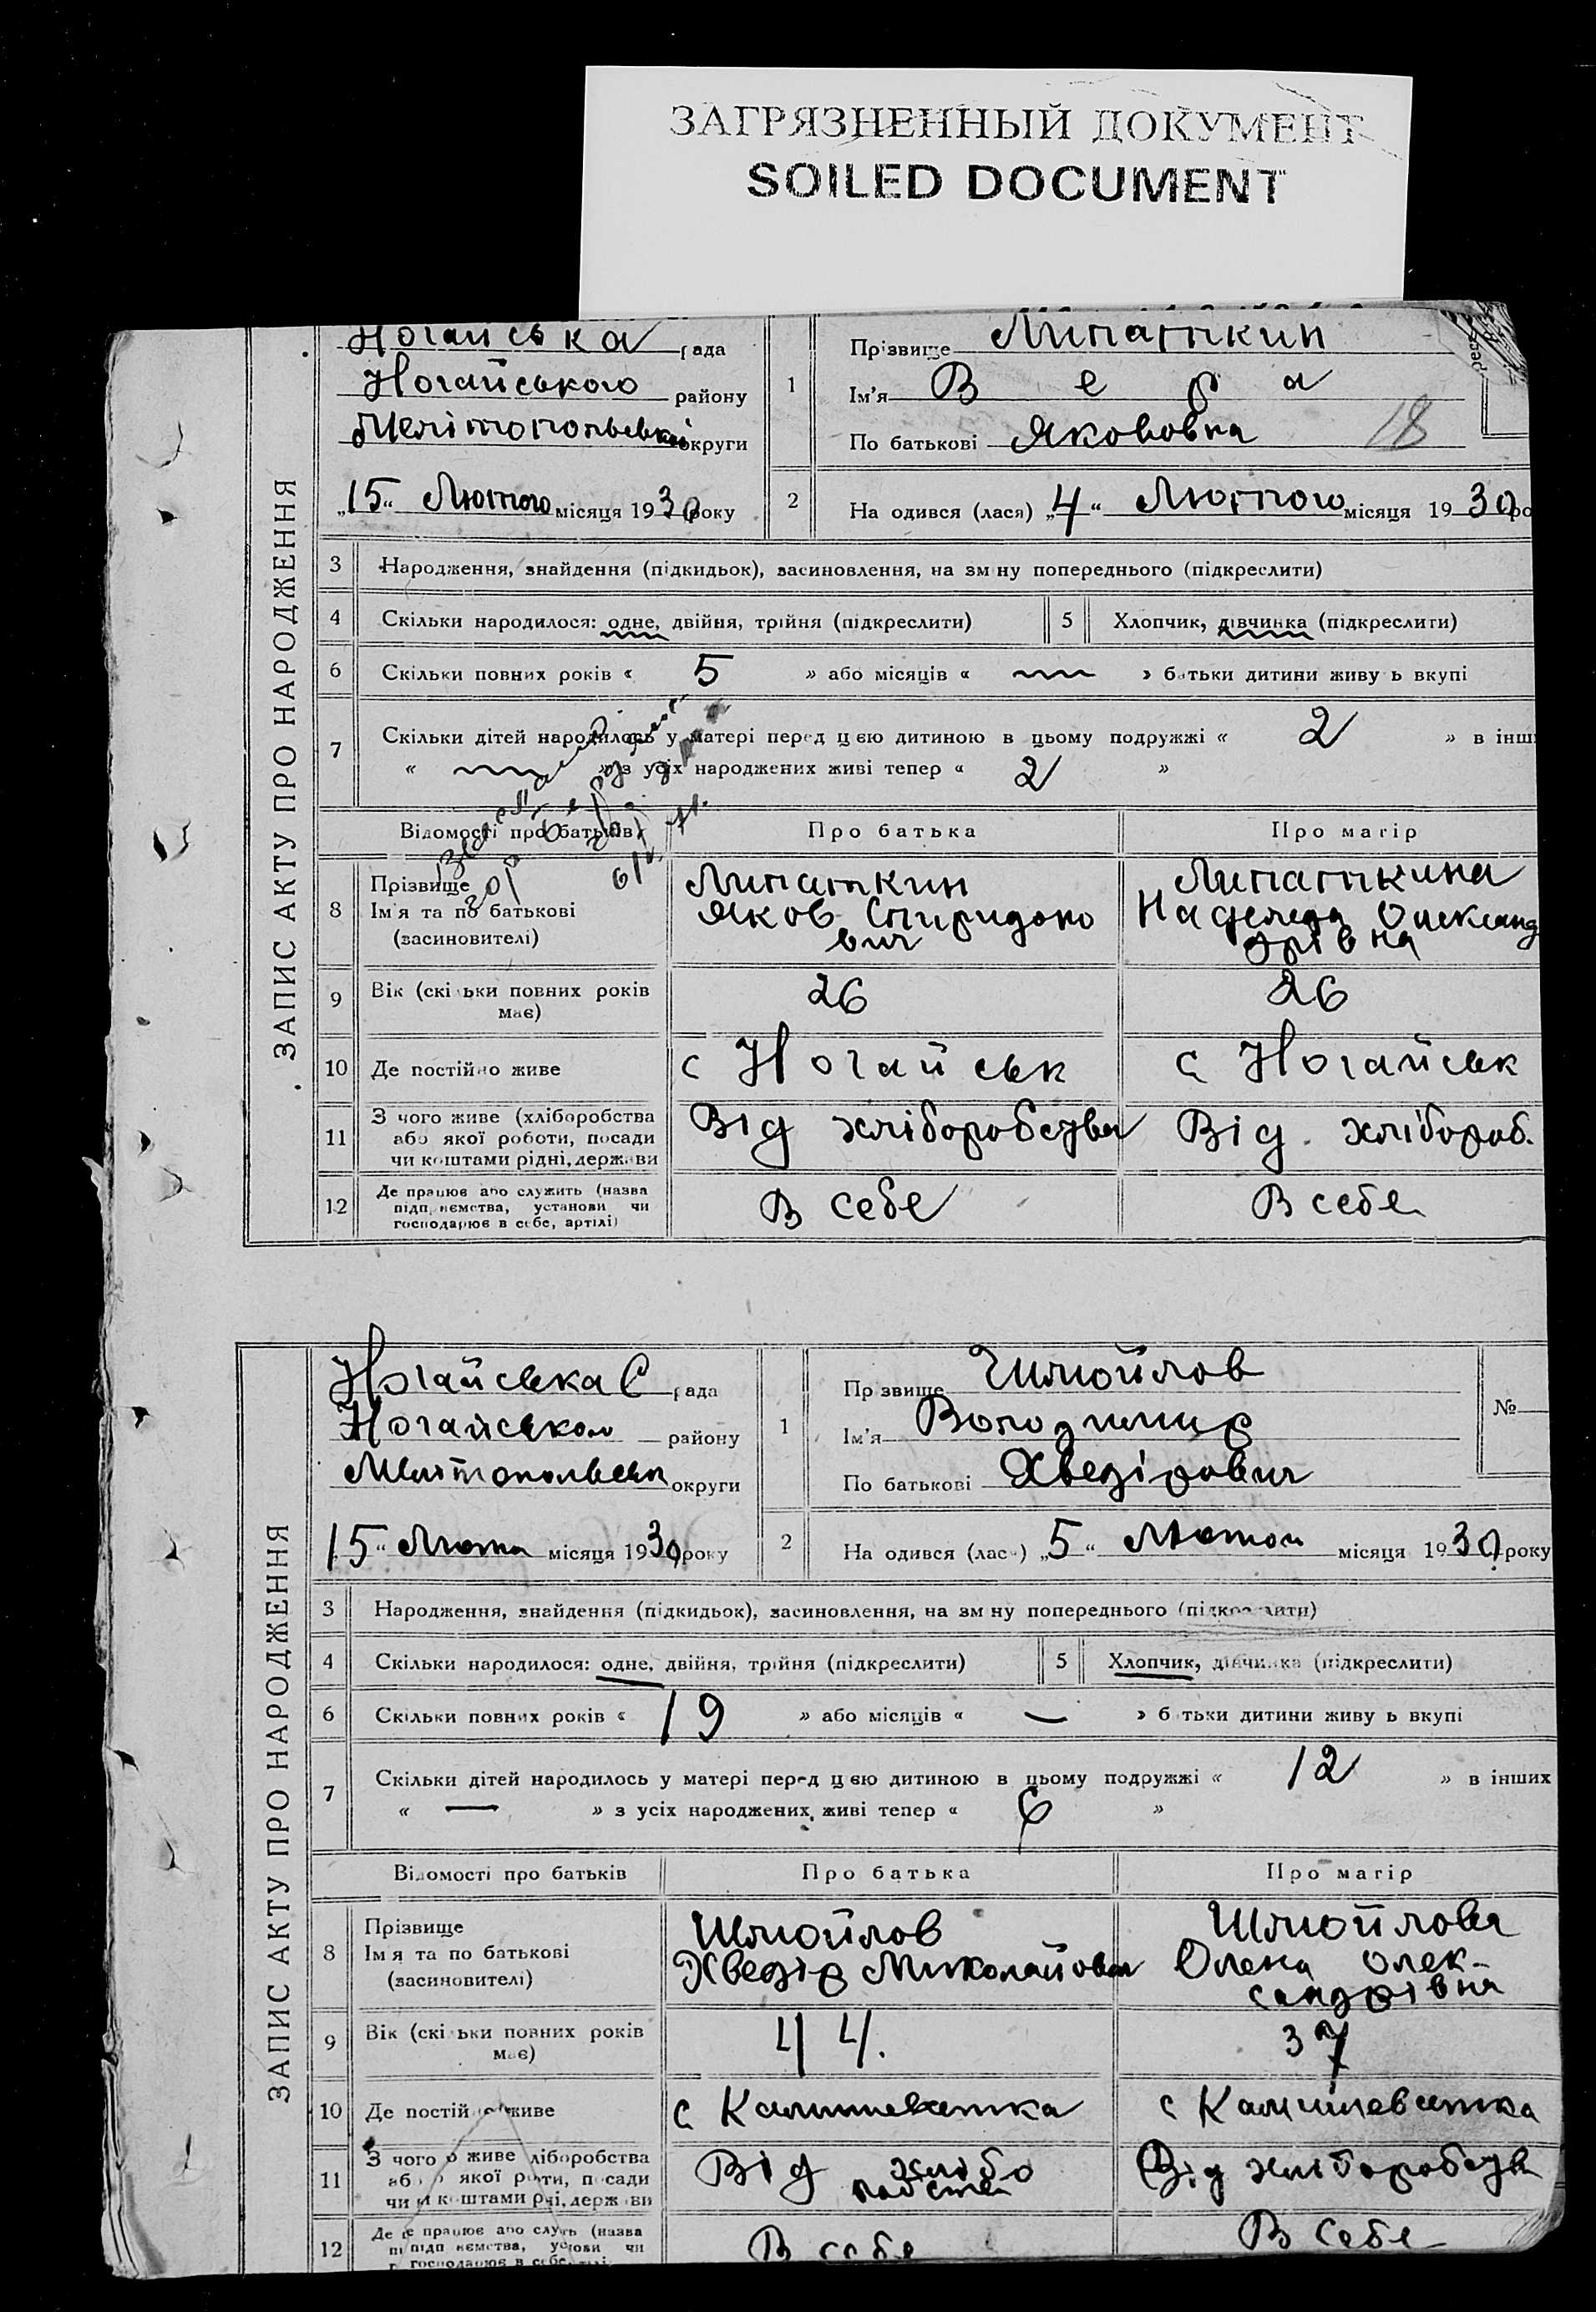 ЗАГРЯЗНЕННЫЙ ДОКУМЕНТ
SOILED DOCUMENT
ЗАПИС АКТУ ПРО НАРОДЖЕННЯ
Ногайська рада
Ногайського району
Мелітопольської округи
„15“ Лютого місяця 1930 року
1
Прізвище Липаткин
Ім'я Вера
По батькові Якововна
18
2
На одився (лася) „4“ Лютого місяця 1930 ро
3 Народження, знайдення (підкидьок), засиновлення, на зм ну попереднього (підкреслити)
4 Скільки народилося: одне, двійня, трійня (підкреслити)
5 Хлопчик, дівчинка (підкреслити)
6 Скільки повних років « 5 » або місяців « — » батьки дитини живу ь вкупі
7 Скільки дітей народилось у матері перед ц ею дитиною в цьому подружжі « 2 » в інш
« — » з усіх народжених живі тепер « 2 »
Відомості про батьків Про батька Про матір
8 Прізвище Липаткин Липаткина
Ім'я та по батькові Яков Спиридоно Надежда Олександ
(засиновителі) вич рівна
9 Вік (скільки повних років має) 26 26
10 Де постійно живе с Ногайськ с Ногайськ
11 З чого живе (хліборобства Від хліборобства Від хлібороб.
або якої роботи, посади
чи коштами рідні, держави
12 Де працює або служить (назва В себе В себе
підприємства, установи чи
господарює в себе, артілі)
ЗАПИС АКТУ ПРО НАРОДЖЕННЯ
Ногайська С рада
Ногайського району
Мелітопольськ округи
15“ Люта місяця 1930 року
1
Пр звище Шмойлов
Ім'я Володимир
По батькові Хведірович
№
2
На одився (лас ) „5“ Лютого місяця 1930 року
3 Народження, знайдення (підкидьок), засиновлення, на зм ну попереднього (підкреслити)
4 Скільки народилося: одне, двійня, трійня (підкреслити)
5 Хлопчик, дівчинка (підкреслити)
6 Скільки повних років « 19 » або місяців « — » б тьки дитини живу ь вкупі
7 Скільки дітей народилось у матері перед ц ею дитиною в цьому подружжі « 12 » в інших
« — » з усіх народжених живі тепер « 6 »
Відомості про батьків Про батька Про матір
8 Прізвище Шмойлов Шмойлова
Ім'я та по батькові Хведір Миколайович Олена Олек-
(засиновителі) сандрівна
9 Вік (скі ьки повних років має) 44. 37
10 Де постій живе с Камишеватка с Камишеватка
11 З чого живе ліборобства Від хлібо Від хліборобства
або якої р ти, посади робства
чи коштами р ні, держ ви
12 Де працює або служ ь (назва В себе В себе
підп иємства, ус ови чи
господарює в себе